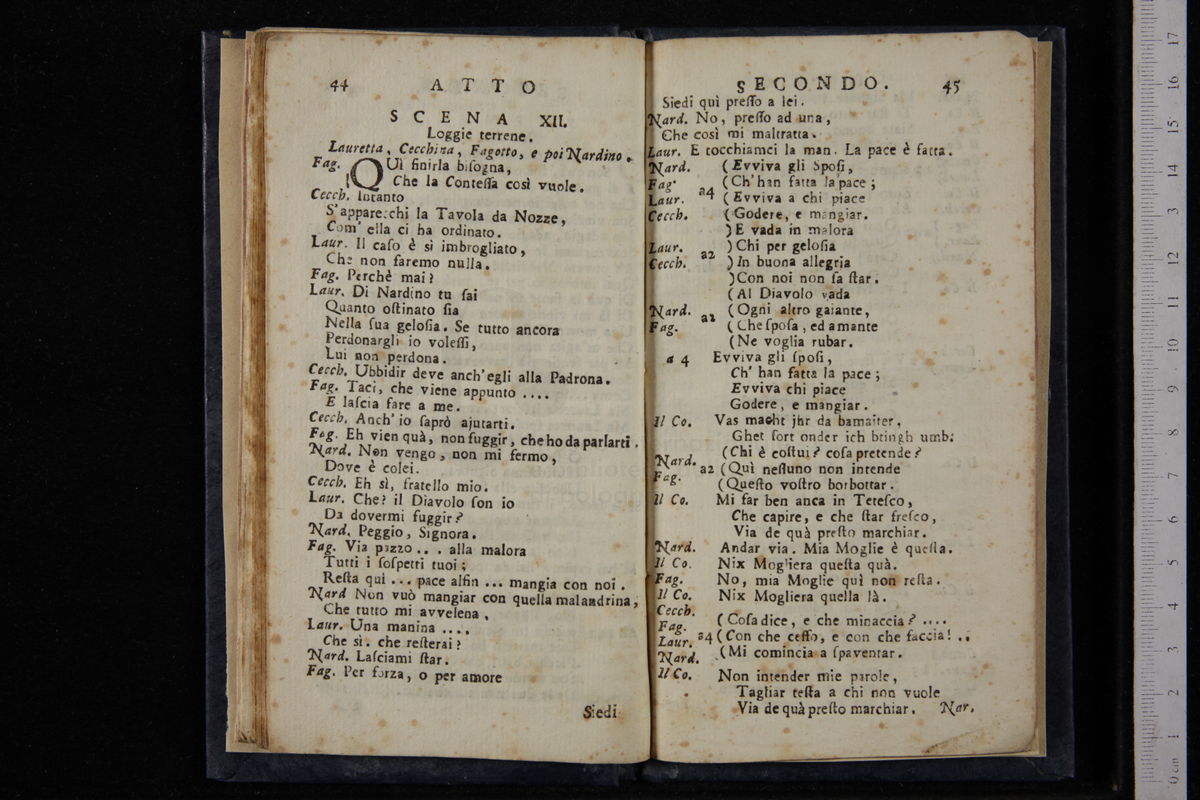 44 ATTO
SCENA XII.
Loggie terrene.
Lauretta, Cecchina, Fagotto, e poi Nardino.
Fag. QUì finirla biſogna,
Che la Conteſſa così vuole.
Cecch. Intanto
S'apparecchi la Tavola da Nozze,
Com' ella ci ha ordinato.
Laur. Il caſo è sì imbrogliato,
Che non faremo nulla.
Fag. Perchè mai?
Laur. Di Nardino tu ſai
Quanto oſtinato ſia
Nella ſua geloſia. Se tutto ancora
Perdonargli io voleſſi,
Lui non perdona.
Cecch. Ubbidir deve anch'egli alla Padrona.
Fag. Taci, che viene appunto ....
E laſcia fare a me.
Cecch. Anch'io ſaprò ajutarti.
Fag. Eh vien quà, non fuggir, che ho da parlarti.
Nard. Non vengo, non mi fermo,
Dove è colei.
Cecch. Eh sì, fratello mio.
Laur. Che? il Diavolo ſon io
Da dovermi fuggir?
Nard. Peggio, Signora.
Fag. Via pazzo... alla malora
Tutti i ſoſpetti tuoi;
Reſta quì ... pace alfin ... mangia con noi.
Nard Non vuò mangiar con quella malandrina,
Che tutto mi avvelena,
Laur. Una manina ....
Che sì. che reſterai?
Nard. Laſciami ſtar.
Fag. Per forza, o per amore
Siedi
SECONDO. 45
Siedi quì preſſo a lei.
Nard. No, preſſo ad una,
Che così mi maltratta.
Laur. E tocchiamci la man. La pace è fatta.
Nard. (Evviva gli Spoſi,
Fag. (Ch'han fatta la pace;
Laur. a4 (Evviva a chi piace
Cecch. (Godere, e mangiar.
)E vada in malora
Laur. )Chi per geloſia
Cecch. a2 )In buona allegria
)Con noi non ſa ſtar.
(Al Diavolo vada
Nard. a2 (Ogni altro galante,
Fag. (Che ſpoſa, ed amante
(Ne voglia rubar.
a 4 Evviva gli ſpoſi,
Ch' han fatta la pace;
Evviva chi piace
Godere, e mangiar.
Il Co. Vas macht jhr da bamaiter,
Ghet fort onder ich bringh umb.
Nard. (Chi è coſtui? coſa pretende?
a2 (Quì neſſuno non intende
Fag. (Queſto voſtro borbottar.
Il Co. Mi far ben anca in Teteſco,
Che capire, e che ſtar freſco,
Via de quà preſto marchiar.
Nard. Andar via. Mia Moglie è queſta.
Il Co. Nix Mogliera queſta quà.
Fag. No, mia Moglie quì non reſta.
Il Co. Nix Mogliera quella là.
Cecch.
Fag. (Coſa dice, e che minaccia? ....
Laur. a4 (Con che ceffo, e con che faccia! ..
Nard. (Mi comincia a ſpaventar.
Il Co. Non intender mie parole,
Tagliar teſta a chi non vuole
Via de quà preſto marchiar. Nar.
0 cm 1 2 3 4 5 6 7 8 9 10 11 12 13 14 15 16 17